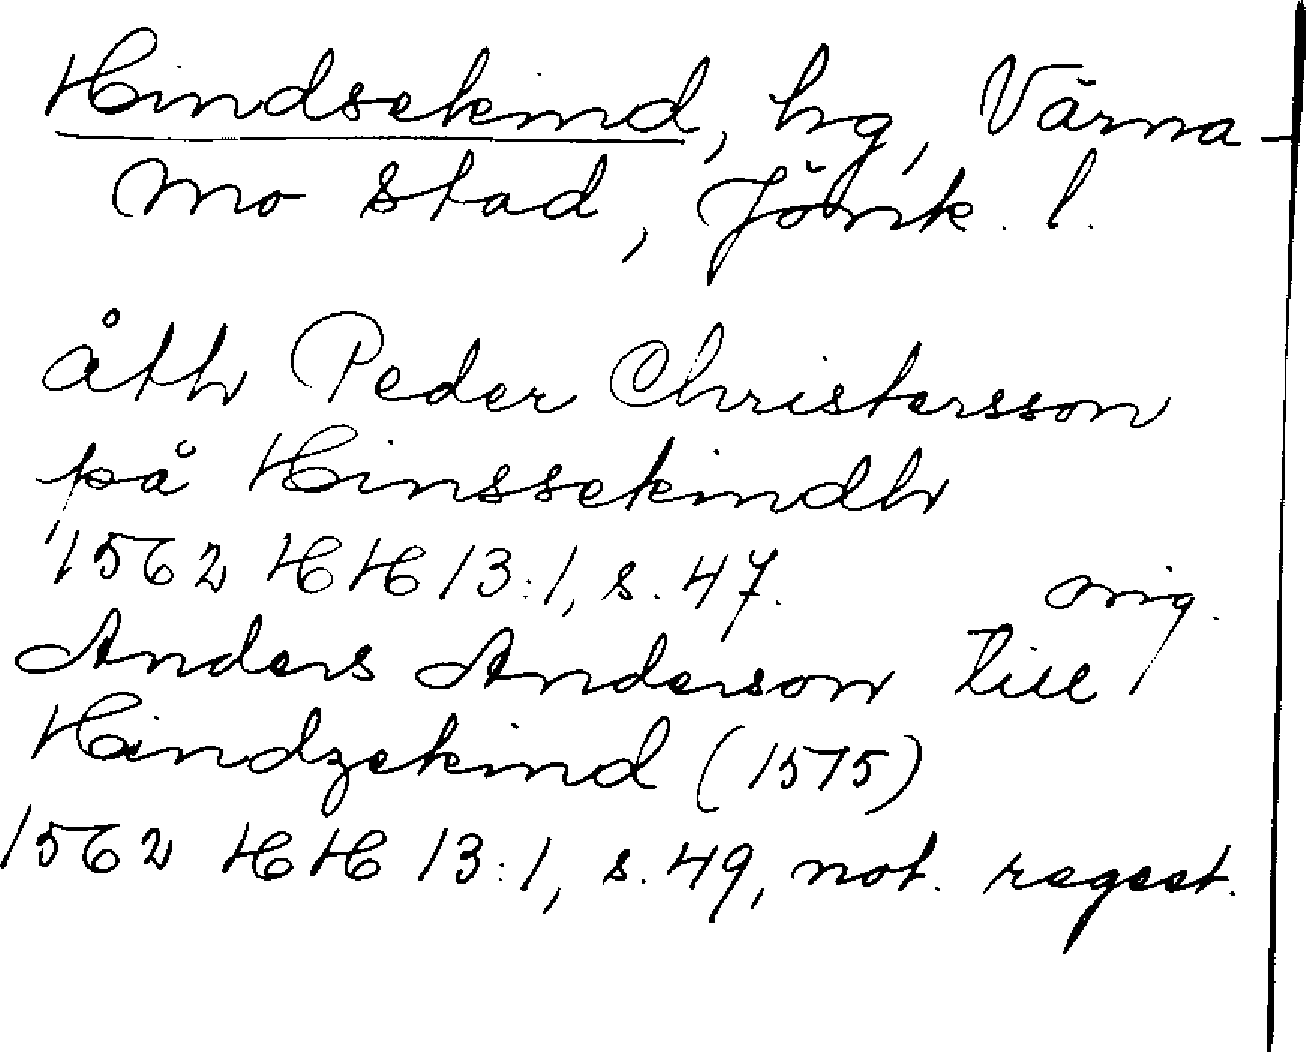 Hindsekind, hg, Värna-
mo stad, Jönk. l.
åth Peder Christersson
på Hinssekindh
1562 HH 13:1, s. 47. orig.
Anders Anderson till
Hindzekind (1575)
1562 HH 13:1, s. 49, not. regest.